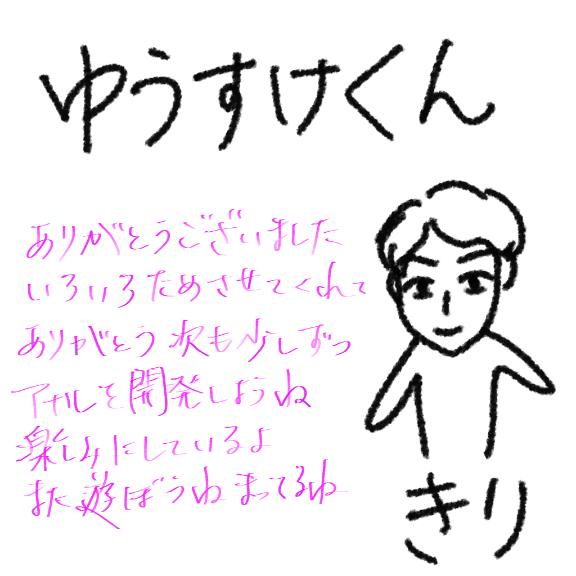 ゆうすけくん
ありがとうございました
いろいろためさせてくれて
ありがとう 次も少しずつ
アナルを開発しようね
楽しみにしているよ
また遊ぼうね まってるね
きり